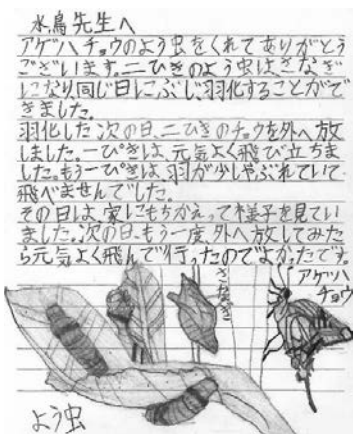 水鳥先生へ
アゲハチョウのよう虫をくれてありがとう
ございます。二ひきのよう虫は、さなぎ
になり同じ日にぶじ羽化することがで
きました。
羽化した次の日、二ひきのチョウを外へ放
しました。一ぴきは、元気よく飛び立ちま
した。もう一ぴきは、羽が少しやぶれていて
飛べませんでした。
その日は、家にもちかえって様子を見てい
ました。次の日、もう一度、外へ放してみた
ら元気よく飛んで行ったのでよかったです。
さなぎ
アゲハ
チョウ
よう虫